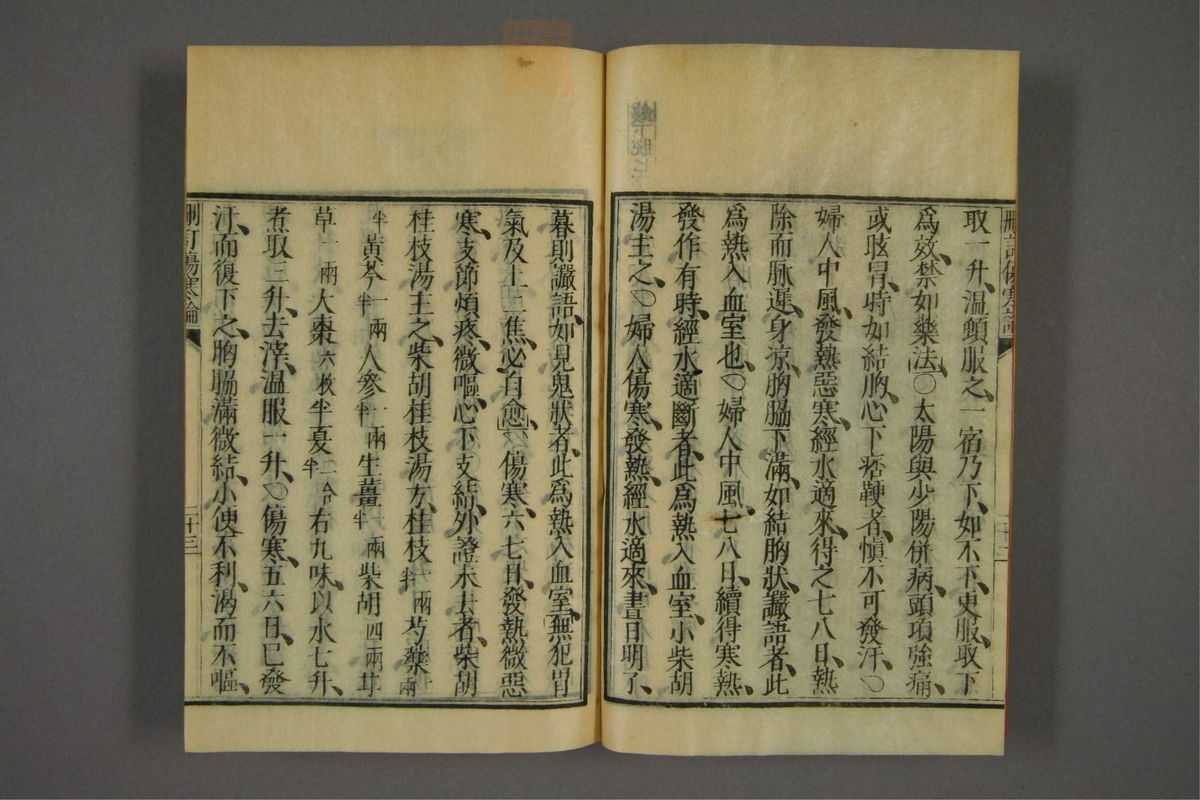 取一升、溫頓服之、一宿乃下、如不下、更服、取下
爲效、禁如藥法、〇太陽與少陽併病、頭項強痛、
或眩冒、時如結胸、心下痞鞕者、愼不可發汗、〇
婦人中風、發熱惡寒、經水適來、得之七八日、熱
除而脉遲、身涼、胸脇下滿、如結胸狀、讝語者、此
爲熱入血室也、〇婦人中風、七八日、續得寒熱、
發作有時、經水適斷者、此爲熱入血室、小柴胡
湯主之、〇婦人傷寒、發熱、經水適來、晝日明了、
暮則讝語、如見鬼狀者、此爲熱入血室、無犯胃
氣及上二焦、必自愈、〇傷寒六七日、發熱微惡
寒、支節煩疼、微嘔、心下支結、外證未去者、柴胡
桂枝湯主之、柴胡桂枝湯方、桂枝一兩半芍藥一兩
半黃芩一兩半人參一兩半生薑一兩半柴胡四兩甘
草一兩大棗六枚半夏二合半右九味、以水七升、
煮取三升、去滓、溫服一升、〇傷寒五六日、已發
汗、而復下之、胸脇滿微結、小便不利、渴而不嘔、
刪訂傷寒論
二十三